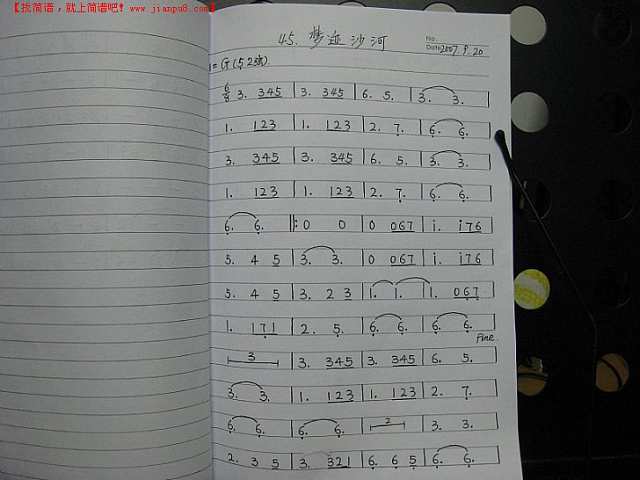 【找简谱，就上简谱吧! www.jianpu8.com】
45. 梦迹沙河
No.
Date 2007.9.20
1=G (5̣2弦)
6/8 3. 345 | 3. 345 | 6. 5. | 3. 3. |
1. 123 | 1. 123 | 2. 7̣. | 6̣. 6̣. |
3. 345 | 3. 345 | 6. 5. | 3. 3. |
1. 123 | 1. 123 | 2. 7̣. | 6̣. 6̣. |
6̣. 6̣. ‖: 0 0 | 0 067 | i. i76 |
5. 4 5 | 3. 3. | 0 067 | i. i76 |
5. 4 5 | 3. 2 3 | 1. 1. | 1. 06̣7̣ |
1. 17̣1 | 2. 5̣. | 6̣. 6̣. | 6̣. 6̣. |
Fine
3 | 3. 345 | 3. 345 | 6. 5. |
3. 3. | 1. 123 | 1. 123 | 2. 7̣. |
6̣. 6̣. | 6̣. 6̣. | 2 | 3. 3. |
2. 3 5 | 3. 321 | 6̣. 6̣ 5̣ | 6̣. 6̣. |